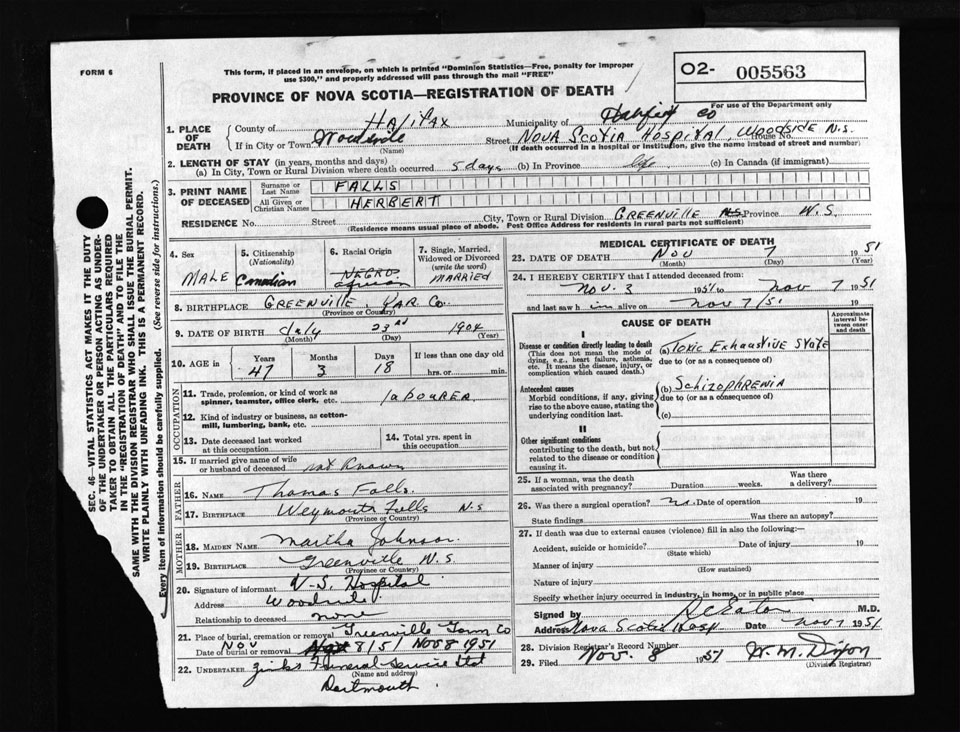 FORM 6
This form, if placed in an envelope, on which is printed "Dominion Statistics—Free, penalty for improper
use $300," and properly addressed will pass through the mail "FREE"
PROVINCE OF NOVA SCOTIA—REGISTRATION OF DEATH
O2- 005563
For use of the Department only
1. PLACE OF DEATH
County of Halifax Municipality of Halifax Co
If in City or Town Woodside Street NOVA SCOTIA HOSPITAL, WOODSIDE N.S. House No.
(Name) (If death occurred in a hospital or institution, give the name instead of street and number)
2. LENGTH OF STAY (in years, months and days)
(a) In City, Town or Rural Division where death occurred 5 days (b) In Province life (c) In Canada (if immigrant)
3. PRINT NAME OF DECEASED
Surname or Last Name FALLS
All Given or Christian Names HERBERT
RESIDENCE No. Street City, Town or Rural Division GREENVILLE NS Province N.S.
(Residence means usual place of abode. Post Office Address for residents in rural parts not sufficient)
4. Sex MALE
5. Citizenship (Nationality) Canadian
6. Racial Origin NEGRO African
7. Single, Married, Widowed or Divorced (write the word) MARRIED
8. BIRTHPLACE GREENVILLE, YAR. Co.
(Province or Country)
9. DATE OF BIRTH July 23rd 1904
(Month) (Day) (Year)
10. AGE in Years 47 Months 3 Days 18 If less than one day old hrs. or min.
OCCUPATION
11. Trade, profession, or kind of work as spinner, teamster, office clerk, etc. LABOURER
12. Kind of industry or business, as cotton-mill, lumbering, bank, etc.
13. Date deceased last worked at this occupation
14. Total yrs. spent in this occupation
15. If married give name of wife or husband of deceased not known
FATHER
16. NAME Thomas Falls.
17. BIRTHPLACE Weymouth Falls N S
(Province or Country)
MOTHER
18. MAIDEN NAME Martha Johnson.
19. BIRTHPLACE Greenville N. S.
(Province or Country)
20. Signature of informant N-S. Hospital
Address Woodside
Relationship to deceased none
21. Place of burial, cremation or removal Greenville Yarm Co
Date of burial or removal NOV 8/51 Nov 8 1951
22. UNDERTAKER Zinks Funeral Service Ltd
(Name and address)
Dartmouth
MEDICAL CERTIFICATE OF DEATH
23. DATE OF DEATH Nov 7 1951
(Month) (Day) (Year)
24. I HEREBY CERTIFY that I attended deceased from:
Nov. 3 1951 to Nov 7 1951
and last saw him alive on Nov 7/51 19
CAUSE OF DEATH
Approximate interval between onset and death
I
Disease or condition directly leading to death
(This does not mean the mode of dying, e.g., heart failure, asthenia, etc. It means the disease, injury, or complication which caused death.)
(a) Toxic Exhaustive State
due to (or as a consequence of)
Antecedent causes
Morbid conditions, if any, giving rise to the above cause, stating the underlying condition last.
(b) Schizophrenia
due to (or as a consequence of)
(c)
II
Other significant conditions
contributing to the death, but not related to the disease or condition causing it.
25. If a woman, was the death associated with pregnancy? Duration weeks. Was there a delivery?
26. Was there a surgical operation? no. Date of operation 19
State findings Was there an autopsy?
27. If death was due to external causes (violence) fill in also the following:—
Accident, suicide or homicide? Date of injury 19
(State which)
Manner of injury
(How sustained)
Nature of injury
Specify whether injury occurred in industry, in home, or in public place
Signed by R C Eaton M.D.
Address Nova Scotia Hosp Date Nov 7 1951
28. Division Registrar's Record Number
29. Filed Nov. 8 1951 W. M. Dixon
(Division Registrar)
SEC. 46—VITAL STATISTICS ACT MAKES IT THE DUTY
OF THE UNDERTAKER OR PERSON ACTING AS UNDER-
TAKER TO OBTAIN ALL THE PARTICULARS REQUIRED
IN THE "REGISTRATION OF DEATH" AND TO FILE THE
SAME WITH THE DIVISION REGISTRAR WHO SHALL ISSUE THE BURIAL PERMIT.
WRITE PLAINLY WITH UNFADING INK. THIS IS A PERMANENT RECORD.
Every item of information should be carefully supplied. (See reverse side for instructions.)